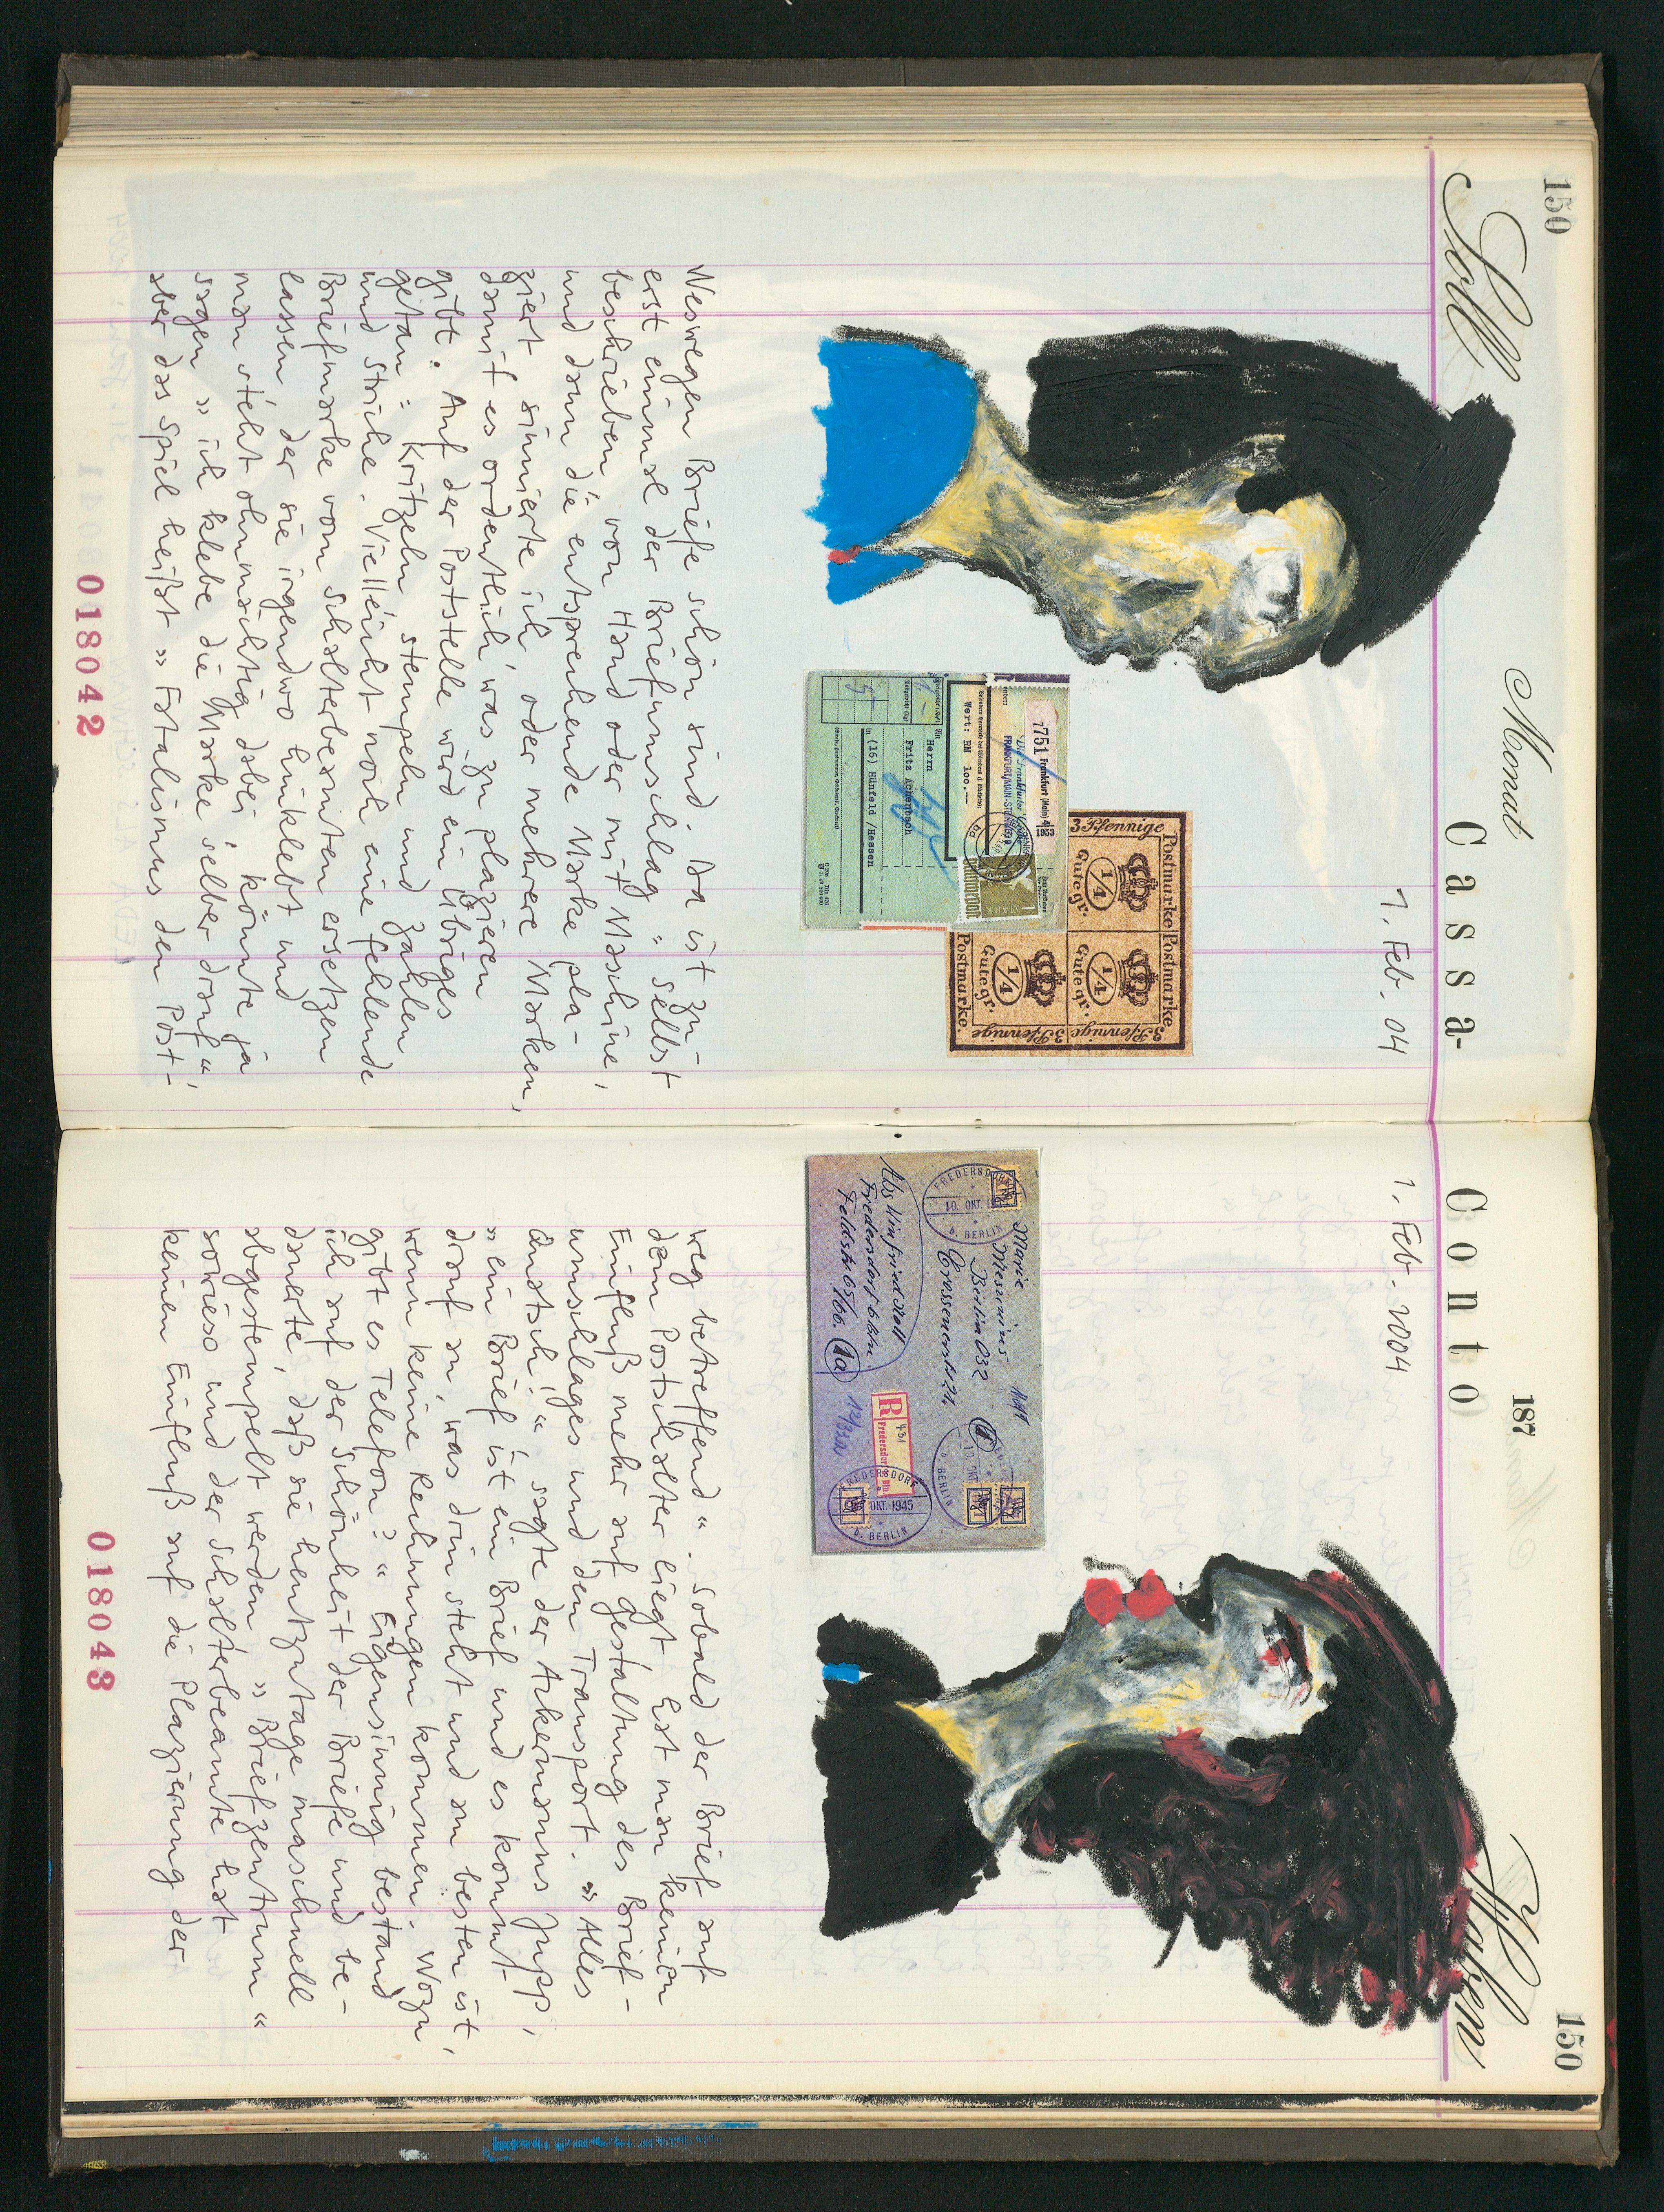 150
Soll
Monat
Cassa-
1. Feb. 04
3 Pfennige
Postmarke
Postmarke
1/4
Gutegr.
1/4
Gutegr.
1/4
Gutegr.
Postmarke.
3 Pfennige
3 Pfennige
751 Frankfurt (Main) 4
1953
FRANKFURT/MAIN-
Wert: RM 100.—
An
Herrn
Fritz Achenbach
in (16) Hünfeld /Hessen
1 MARK
Weswegen Briefe schön sind. Da ist zu-
erst einmal der Briefumschlag " selbst
beschrieben von Hand oder mit Maschine,
und dann die entsprechende Marke pla-
ziert sinnierte ich oder mehrere Marken,
damit es ordentlich was zu plazieren
gibt. Auf der Poststelle wird ein Übriges
getan = kritzeln stempeln und Zahlen
und Striche. Vielleicht noch eine fehlende
Briefmarke vom Schalterbeamten ersetzen
lassen der sie irgendwo hinklebt und
man steht ohnmächtig dabei könnte ja
sagen » ich klebe die Marke selber drauf «,
aber das Spiel heißt » Fatalismus den Post-
018042
Conto
187
Haben
150
1. Feb. 2004
Marie
Meszeries
Berlin O32
Crossenerstr. 21.
FREDERSDORF
10. OKT.
b. BERLIN
Abs Winfried Noll
Fredersdorf b. Bln.
Feldstr. 65/66.
1a
R
Fredersdorf
431
10. OKT.
b. BERLIN
FREDERSDORF
OKT. 1945
b. BERLIN
weg betreffend «. Sobald der Brief auf
dem Postschalter liegt hat man keinen
Einfluß mehr auf Gestaltung des Brief-
umschlages und den Transport. » Alles
Quatsch! « sagte der Ackermanns Jupp,
» ein Brief ist ein Brief und es kommt
drauf an, was drin steht und am besten ist,
wenn keine Rechnungen kommen. Wozu
gibt es Telefon? « Eigensinnig bestand
ich auf der Schönheit der Briefe und be-
dauerte, daß sie heutzutage maschinell
abgestempelt werden » Briefzentrum «
sowieso und der Schalterbeamte hat
keinen Einfluß auf die Plazierung der
018043